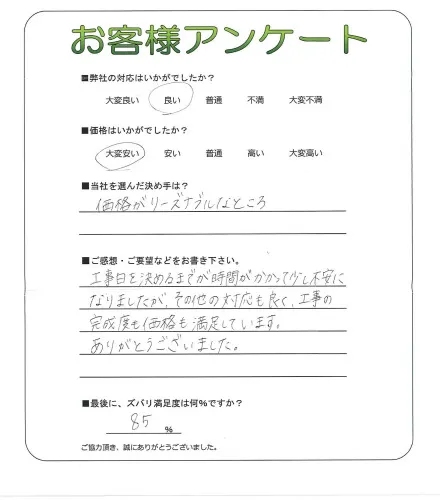 お客様アンケート
■弊社の対応はいかがでしたか?
大変良い 良い 普通 不満 大変不満
■価格はいかがでしたか?
大変安い 安い 普通 高い 大変高い
■当社を選んだ決め手は?
価格がリーズナブルなところ
■ご感想・ご要望などをお書き下さい。
工事日を決めるまでが時間がかかって少し不安に
なりましたが、その他の対応も良く、工事の
完成度も価格も満足しています。
ありがとうございました。
■最後に、ズバリ満足度は何%ですか?
85 %
ご協力頂き、誠にありがとうございました。